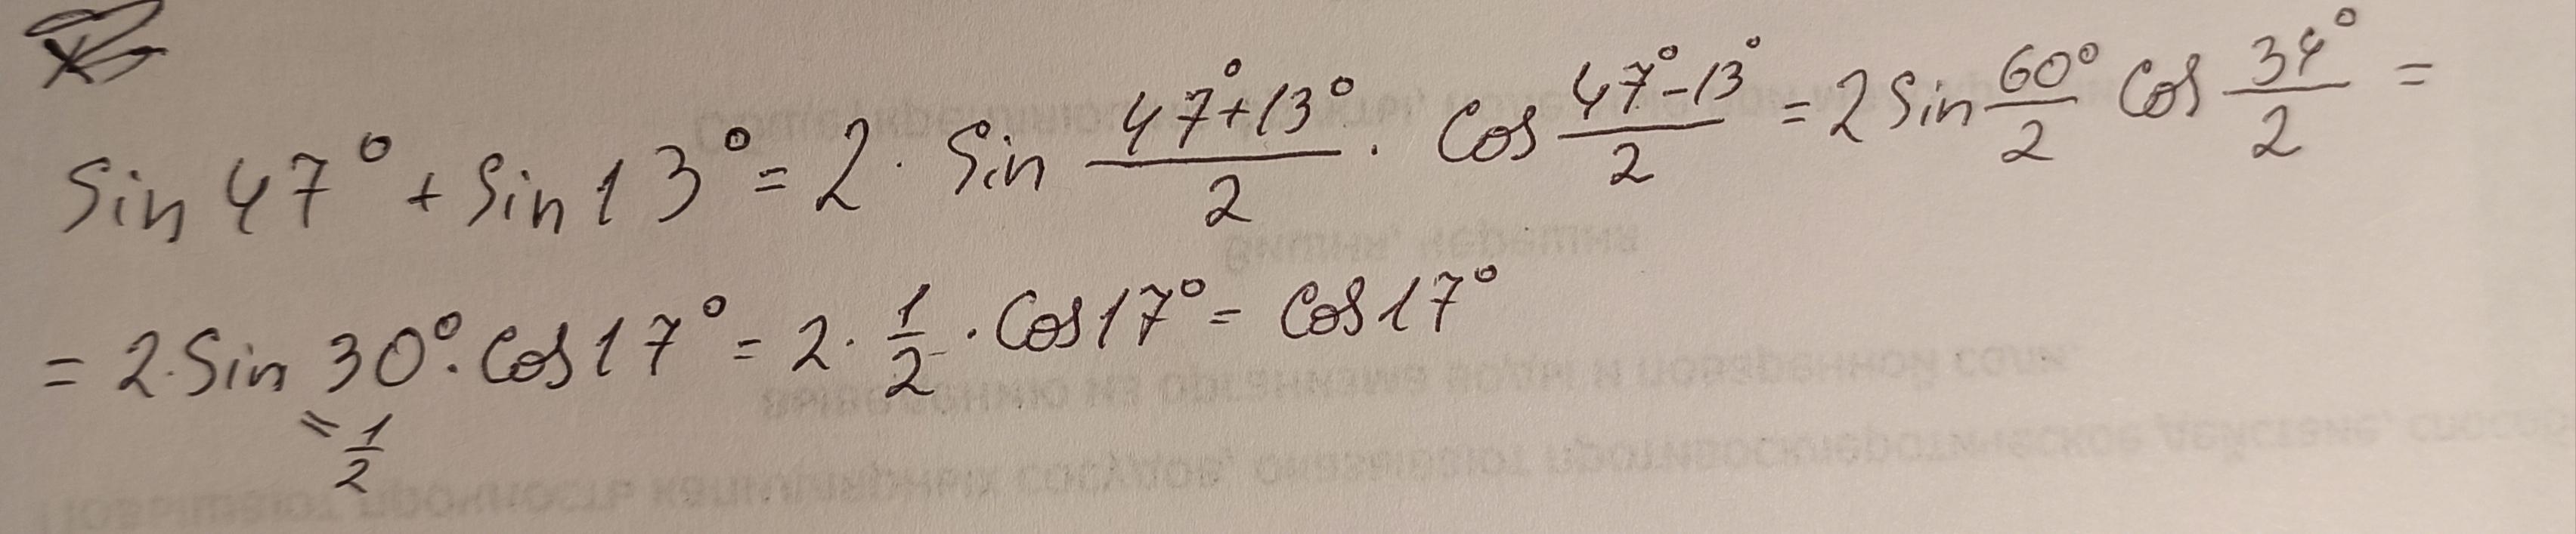 sin 47° + sin 13° = 2 · sin (47° + 13°)/2 · cos (47° - 13°)/2 = 2 sin 60°/2 cos 34°/2 =
= 2 · sin 30° · cos 17° = 2 · 1/2 · cos 17° = cos 17°
= 1/2